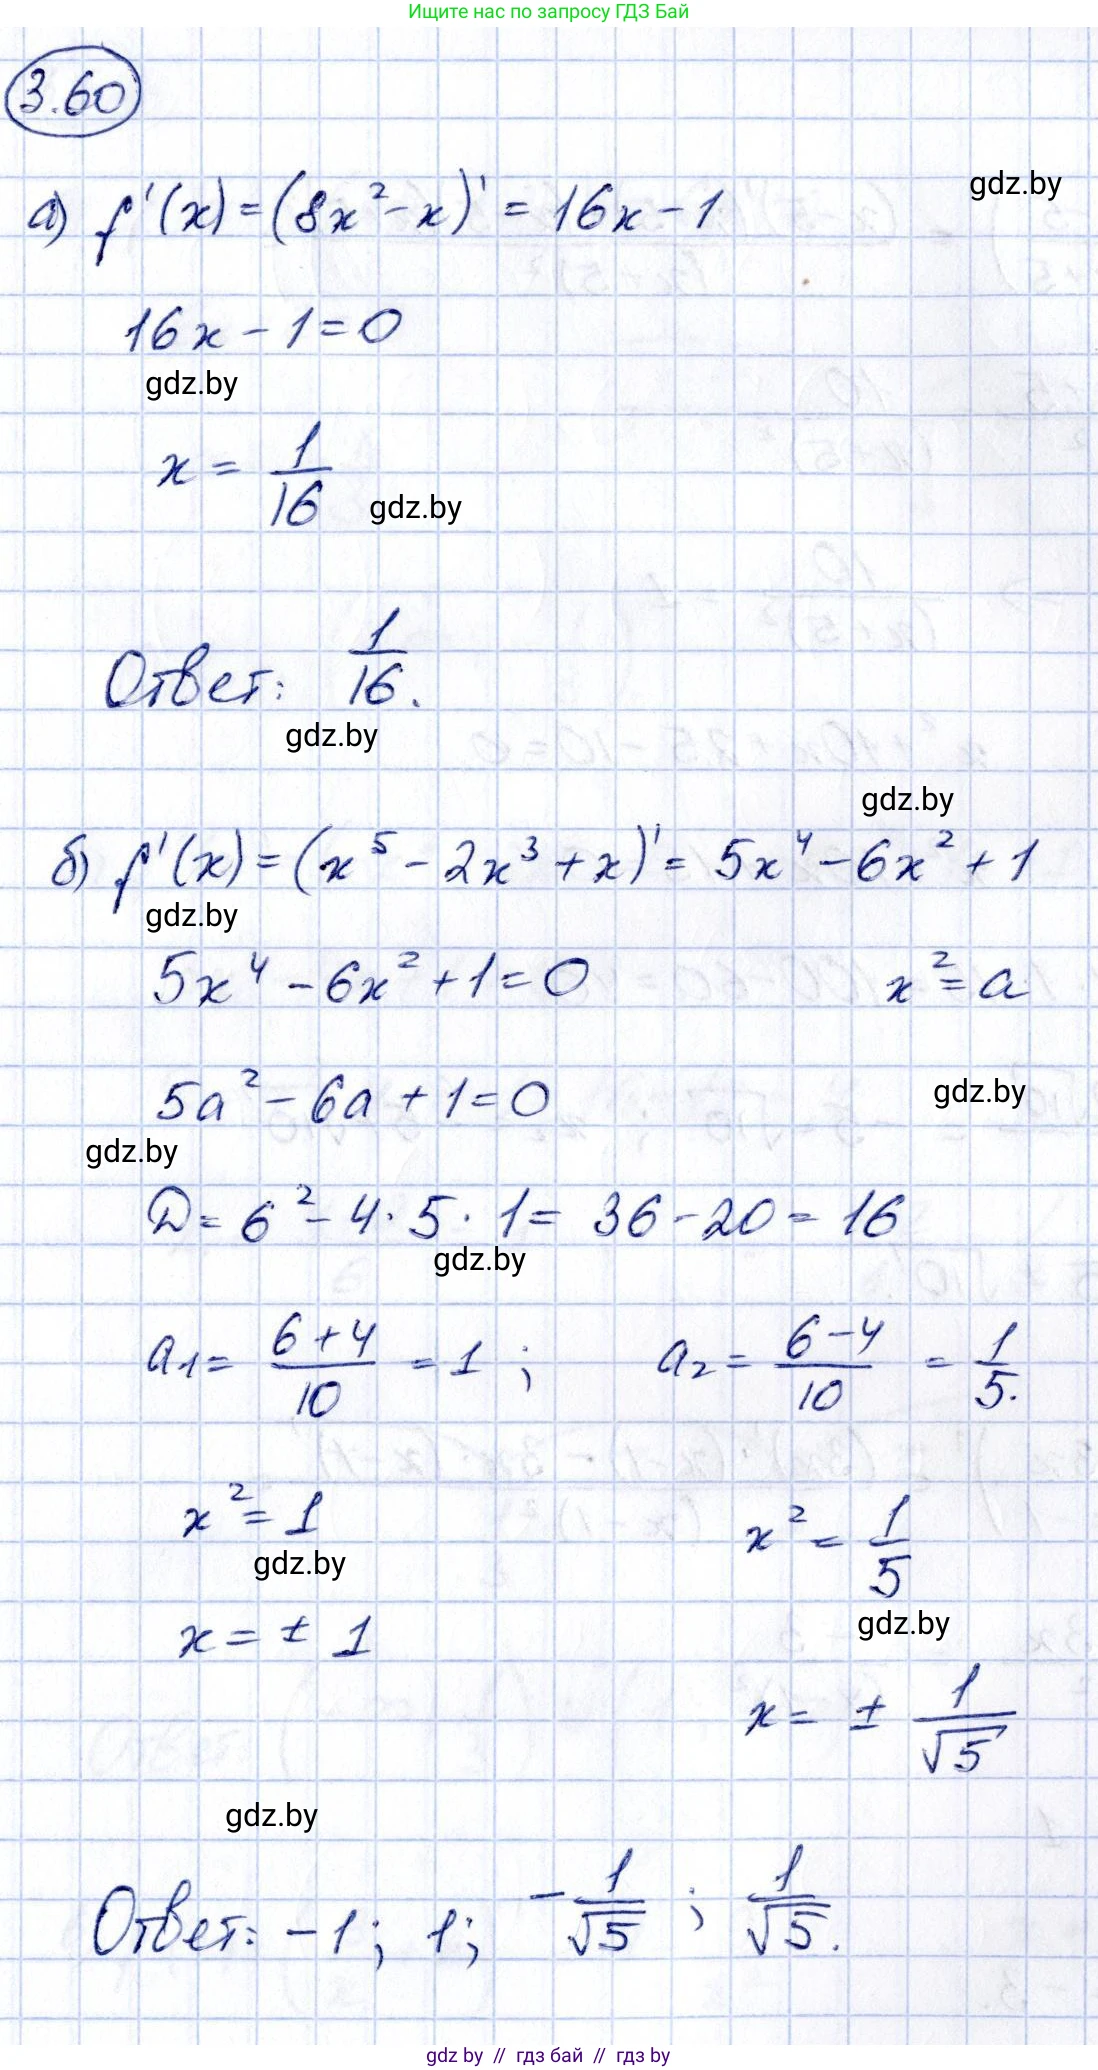 Ищите нас по запросу ГДЗ Бай
3.60
gdz.by
а) f'(x) = (8x² - x)' = 16x - 1
16x - 1 = 0
gdz.by
x = 1/16
gdz.by
Ответ: 1/16.
gdz.by
gdz.by
б) f'(x) = (x⁵ - 2x³ + x)' = 5x⁴ - 6x² + 1
gdz.by
5x⁴ - 6x² + 1 = 0 x² = a
5a² - 6a + 1 = 0
gdz.by
gdz.by
D = 6² - 4 · 5 · 1 = 36 - 20 = 16
gdz.by
a₁ = (6 + 4)/10 = 1 ; a₂ = (6 - 4)/10 = 1/5.
x² = 1 x² = 1/5
gdz.by
gdz.by
x = ± 1
x = ± 1/√5
gdz.by
Ответ: -1; 1; -1/√5 ; 1/√5.
gdz by // гдз бай // гдз by